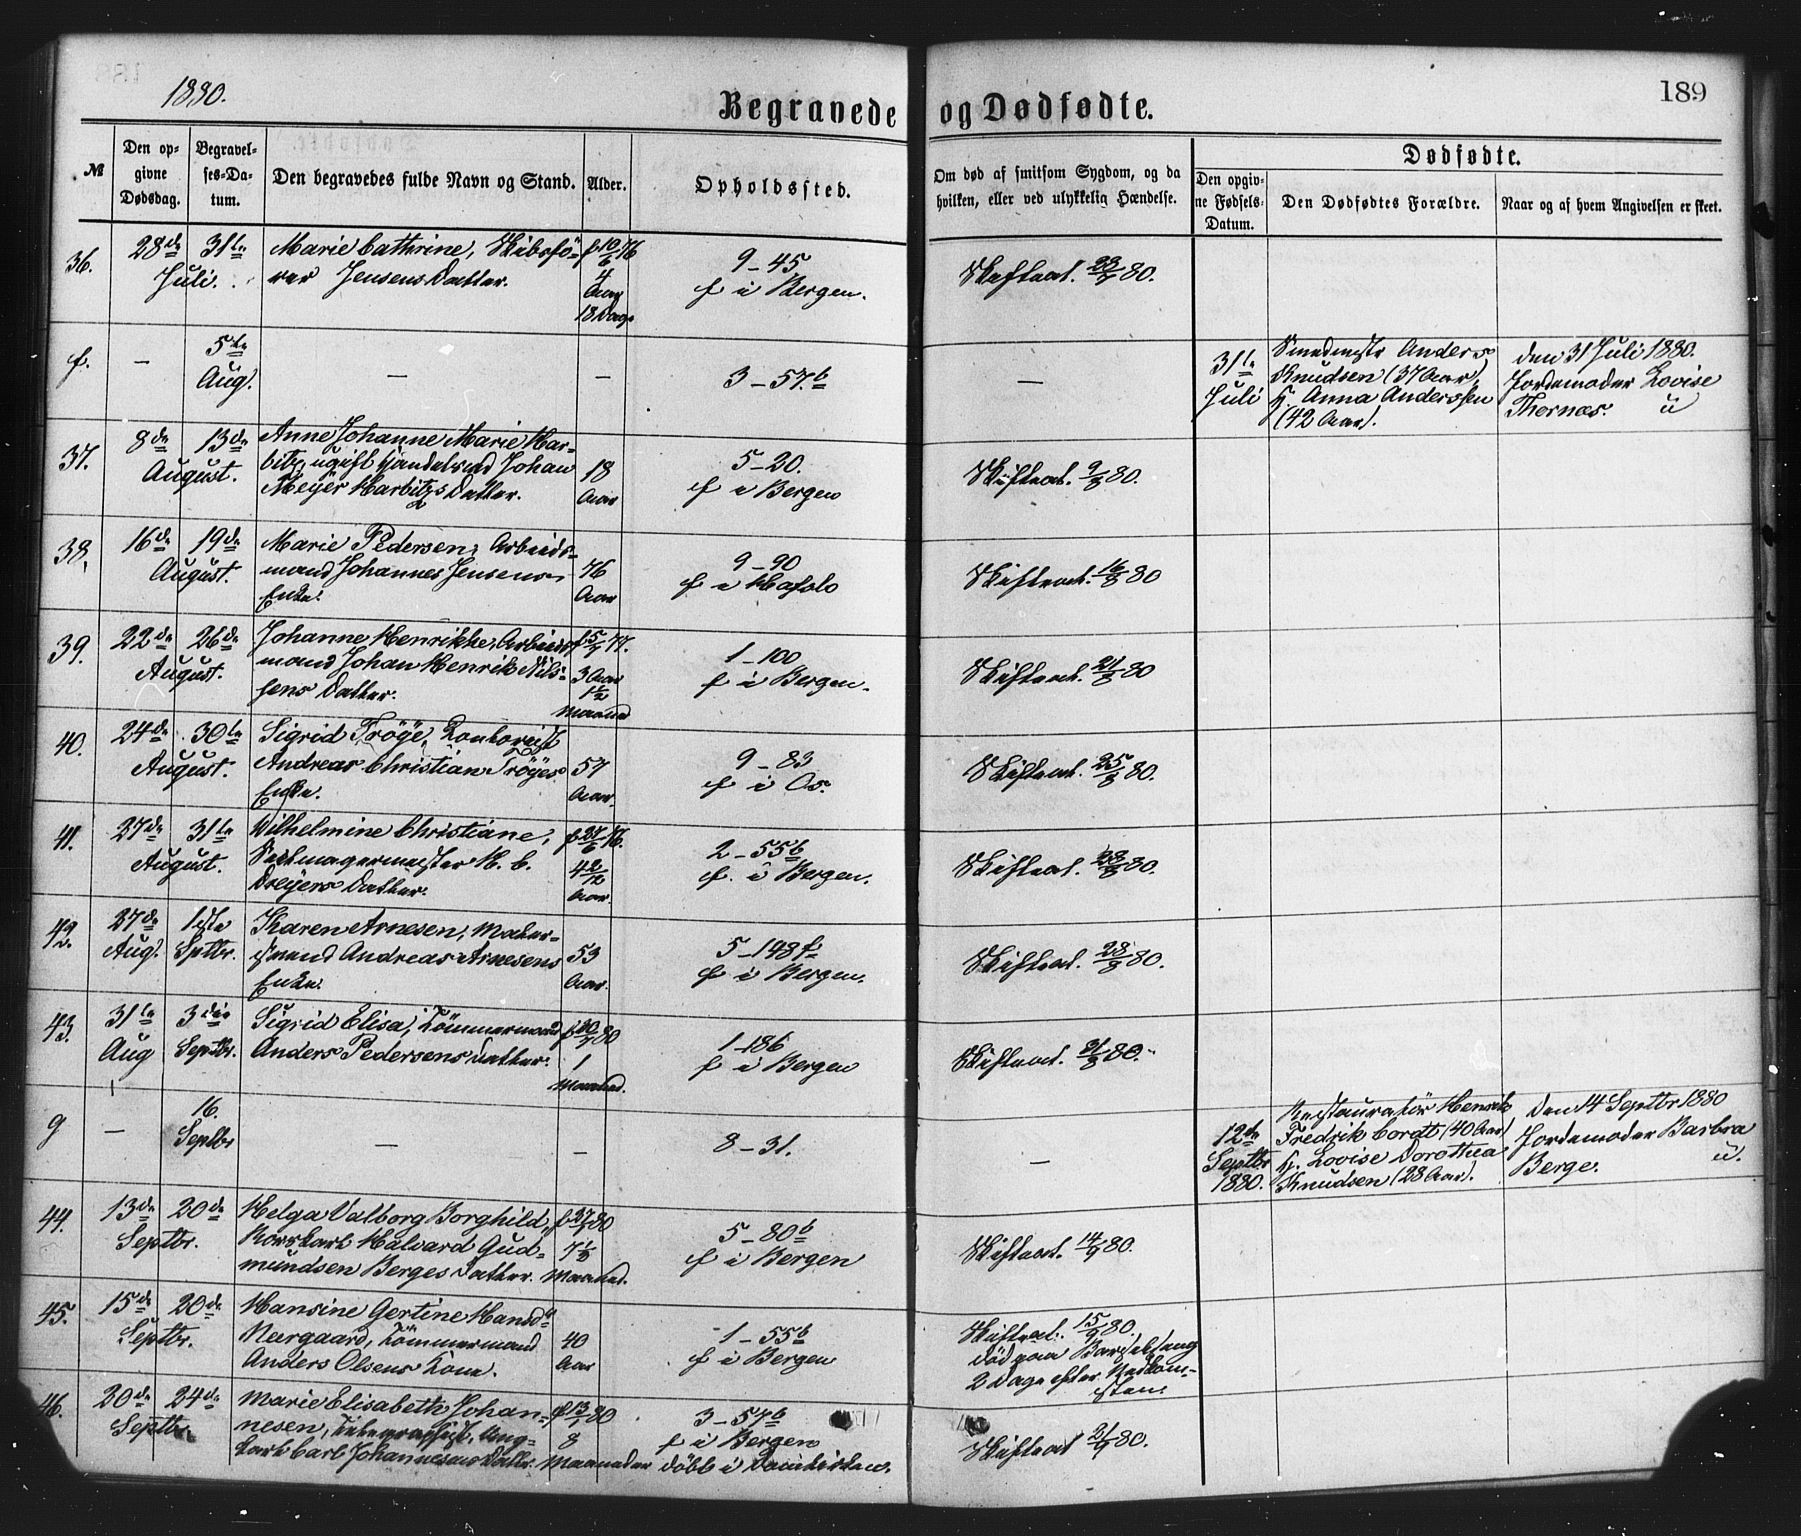 1880.
Begravede og Dødfødte.
189
№
Den opgivne Dødsdag.
Begravelses-Datum.
Den begravedes fulde Navn og Stand.
Alder.
Opholdssted.
Om død af smitsom Sygdom, og da hvilken, eller ved ulykkelig Hændelse.
Dødfødte.
Den opgivne Fødsels-Datum.
Den Dødfødtes Forældre.
Naar og af hvem Angivelsen er skeet.
36. 28de 31te Juli.
Marie Cathrine, Skibsfö-
rer Jensens Datter.
f 10/6 76
4
Aar
18 Dage
9-45
f i Bergen.
Skifteat. 28/7 80.
f. — 5te Aug. — —
3-57.b
—
31te
Juli
Smedmstr Anders
Knudsen (37 Aar),
H. Anna Anderssen
(42 Aar).
den 31 Juli 1880.
Jordemoder Lovise
Thornæs. u
37. 8de 13de August.
Anne Johanne Marie Har-
bitz, ugift Handelsmd Johan
Meyer Harbitz's Datter.
18
Aar
5-20.
f i Bergen
Skifteat. 9/8 80.
38. 16de 19de August.
Marie Pedersen, Arbeids-
mand Johannes Jensens
Enke.
76
Aar
9-90
f i Hafslo
Skifteat. 16/8 80
39. 22de 26de August.
Johanne Henrikke, Arbeids-
mand Johan Henrik Nils-
sens Datter.
f 5/7 77.
3 Aar
1 1/2
Maaned
1-100
f i Bergen.
Skifteat. 21/8 80
40. 24de 30te August.
Sigrid Tröye, Kontorist
Andreas Christian Tröyes
Enke.
57
Aar.
9-83
f i Os.
Skifteat. 25/8 80.
41. 27de 31te August.
Wilhelmine Christiane,
Seilmagermester H. C.
Dreyers Datter.
f 27/6 76.
4 2/12
Aar
2-55b
f. i Bergen.
Skifteat. 28/8 80.
42. 27de Aug. 1ste Septbr.
Karen Arnesen,
mand Andreas Arnesens
Enke.
53
Aar.
5-148f
f i Bergen.
Skifteat. 28/8 80.
43. 31te Aug 3die Septbr.
Sigrid Elisa, Tömmermand
Anders Pedersens Datter.
f 30/7 80
1
Maaned.
1-186
f i Bergen
Skifteat. 31/8 80.
g — 16. Septbr — —
8-31.
—
12te
Septbr
1880.
Restauratör Henrik
Fredrik Cordt (40 Aar)
H. Lovise Dorothea
Knudsen (28 Aar).
Den 14 Septbr 1880
Jordemoder Barbra
Berge. u.
44. 13de 20de Septbr.
Helga Valborg Borghild,
Halvard Gud-
mundsen Berges Datter.
80
7 1/2
Maaned.
5-80b
f i Bergen
Skifteat. 14/9 80.
45. 15de 20de Septbr.
Hansine Gertine Hansdr
Neergaard, Tömmermand
Anders Olsens Kone.
40
Aar
1-55b
f i Bergen
Skifteat. 15/9 80.
död paa Barselseng
2 Dage efter Nedkom-
sten.
46. 20de 24de Septbr.
Marie Elisabeth Johan-
nesen, Telegrafist, Ung-
karl Carl Johannesens Datter.
f 13/1 80
8
Maaneder
3-57b
f i Bergen
döbt i Domkirken.
Skifteat 21/9 80.